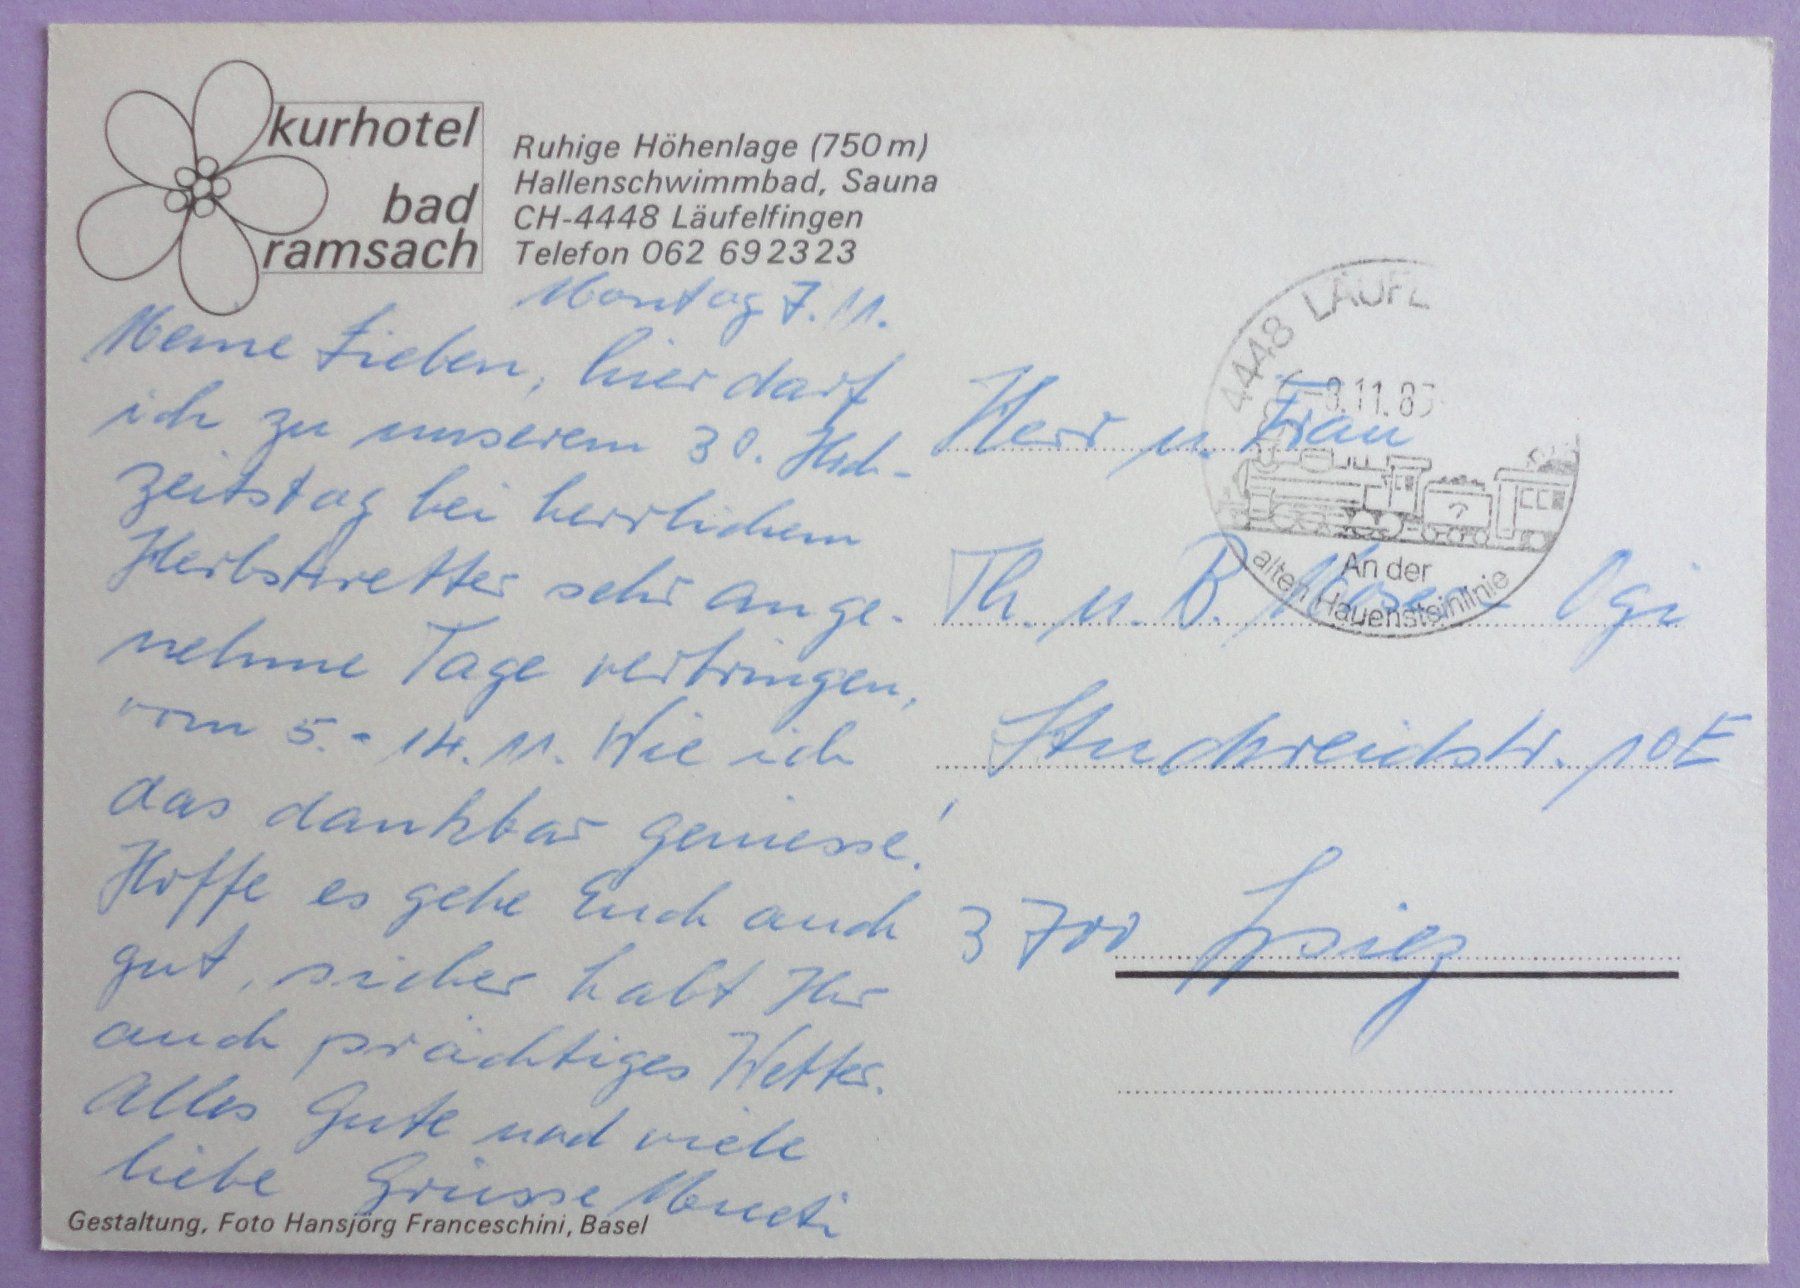 kurhotel
bad
ramsach
Ruhige Höhenlage (750 m)
Hallenschwimmbad, Sauna
CH-4448 Läufelfingen
Telefon 062 69 23 23
Montag 7.11.
Meine Lieben, hier darf
ich zu unserem 30. Hoch-
zeitstag bei herrlichem
Herbstwetter sehr ange-
nehme Tage verbringen,
vom 5.- 14.11. Wie ich
das dankbar geniesse!
Hoffe es gehe Euch auch
gut, sicher habt Ihr
auch prächtiges Wetter.
Alles Gute und viele
liebe Grüsse
Gestaltung, Foto Hansjörg Franceschini, Basel
4448 LÄUFL
.11.83
An der
alten Hauensteinlinie
Herr u. Frau
Th. u. B. - Ogi
10E
3700 Spiez